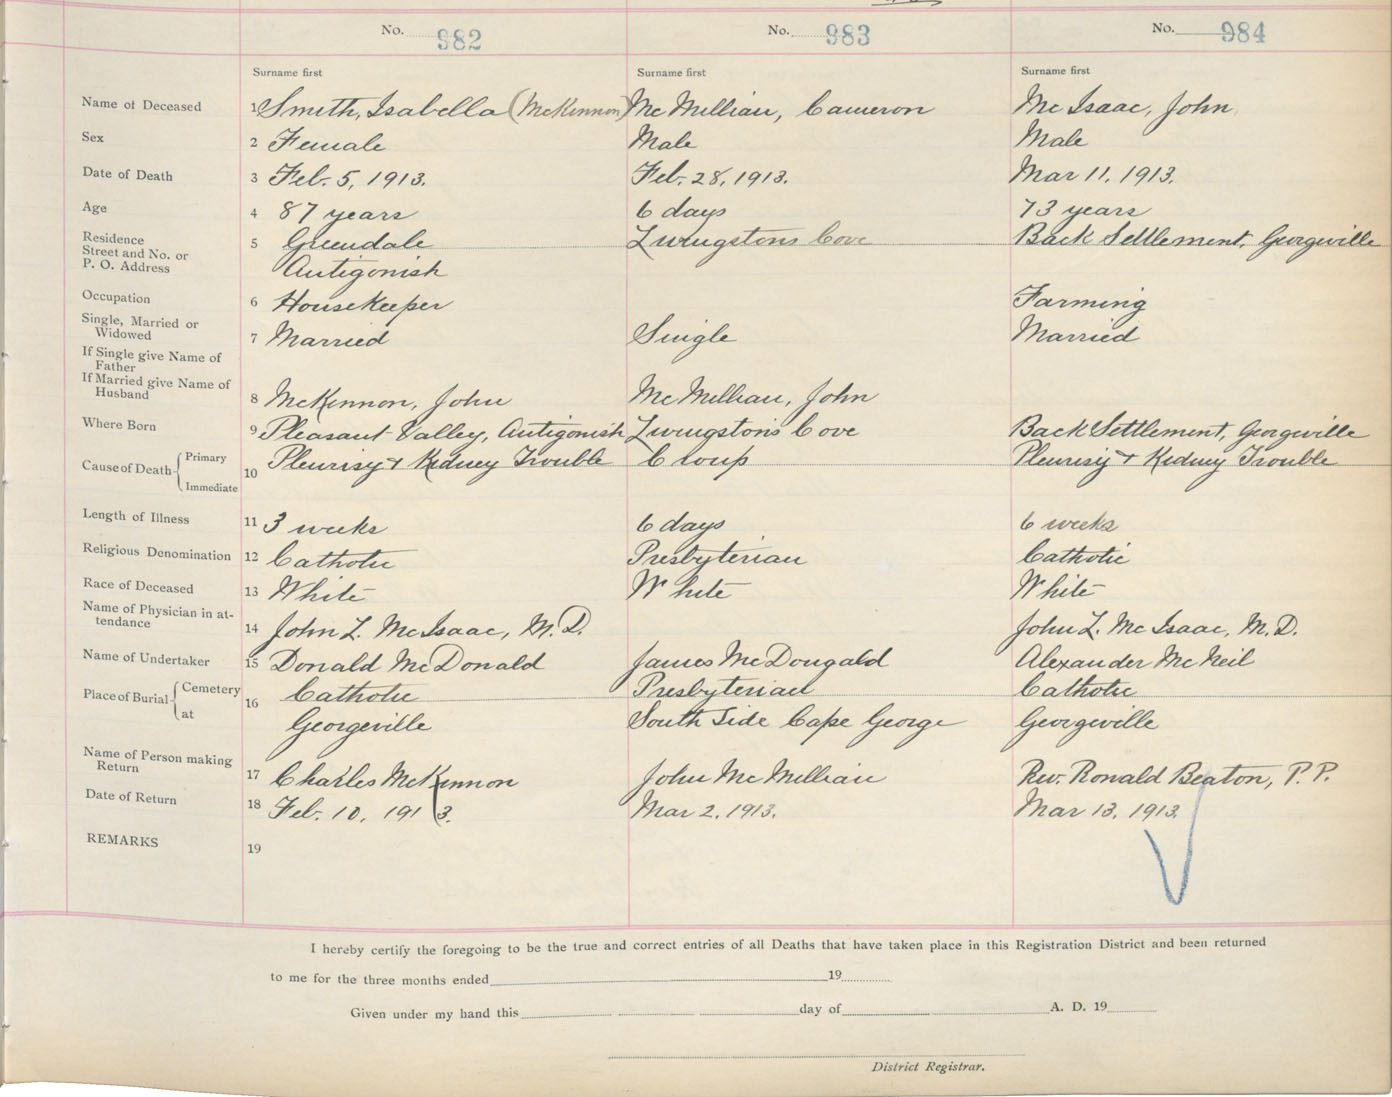 No. 982 No. 983 No. 984
Surname first Surname first Surname first
Name of Deceased 1 Smith, Isabella (McKinnon) McMillian, Cameron McIsaac, John
Sex 2 Female Male Male
Date of Death 3 Feb. 5, 1913. Feb. 28, 1913. Mar 11, 1913.
Age 4 87 years 6 days 73 years
Residence
Street and No. or 5 Greendale Livingstons Cove Back Settlement, Georgeville
P. O. Address Antigonish
Occupation 6 Housekeeper Farming
Single, Married or
Widowed 7 Married Single Married
If Single give Name of
Father
If Married give Name of
Husband 8 McKinnon, John McMillian, John
Where Born 9 Pleasant Valley, Antigonish Livingston's Cove Back Settlement, Georgeville
Cause of Death Primary 10 Pleurisy & Kidney Trouble Croup Pleurisy & Kidney Trouble
Immediate
Length of Illness 11 3 weeks 6 days 6 weeks
Religious Denomination 12 Catholic Presbyterian Catholic
Race of Deceased 13 White White White
Name of Physician in at-
tendance 14 John L. McIsaac, M.D. John L. McIsaac, M.D.
Name of Undertaker 15 Donald McDonald James McDougald Alexander McNeil
Place of Burial Cemetery 16 Catholic Presbyterian Catholic
at Georgeville South Side Cape George Georgeville
Name of Person making
Return 17 Charles McKinnon John McMillian Rev. Ronald Beaton, P.P.
Date of Return 18 Feb. 10, 1913. Mar 2, 1913. Mar 13, 1913.
REMARKS 19
I hereby certify the foregoing to be the true and correct entries of all Deaths that have taken place in this Registration District and been returned
to me for the three months ended 19
Given under my hand this day of A. D. 19
District Registrar.